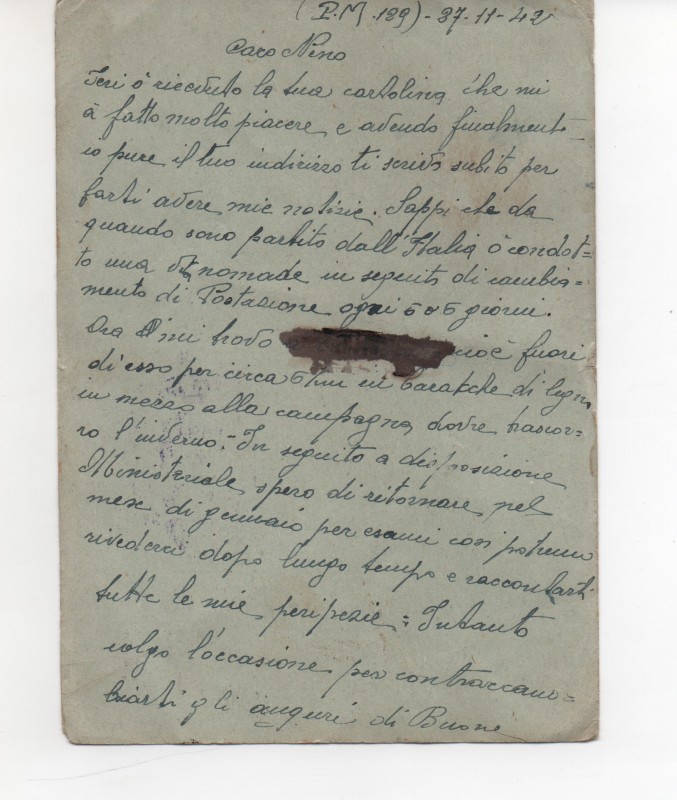 (P.M. 139) - 27-11-42
Caro Nino
Ieri ò ricevuto la tua cartolina che mi
à fatto molto piacere e avendo finalment=
io pure il tuo indirizzo ti scrivo subito per
farti avere mie notizie. Sappi che da
quando sono partito dall'Italia ò condot=
to una vita nomade in seguito di cambia=
mento di Postazione ogni 5 o 6 giorni.
Ora mi trovo cioè fuori
di esso per circa 6 km in baracche di legno
in mezzo alla campagna dove trascor=
ro l'inverno.- In seguito a disposizione
Ministeriale spero di ritornare nel
mese di gennaio per esami così potremo
rivederci dopo lungo tempo e raccontarti
tutte le mie peripezie. Intanto
colgo l'occasione per contraccam=
biarti gli auguri di Buone